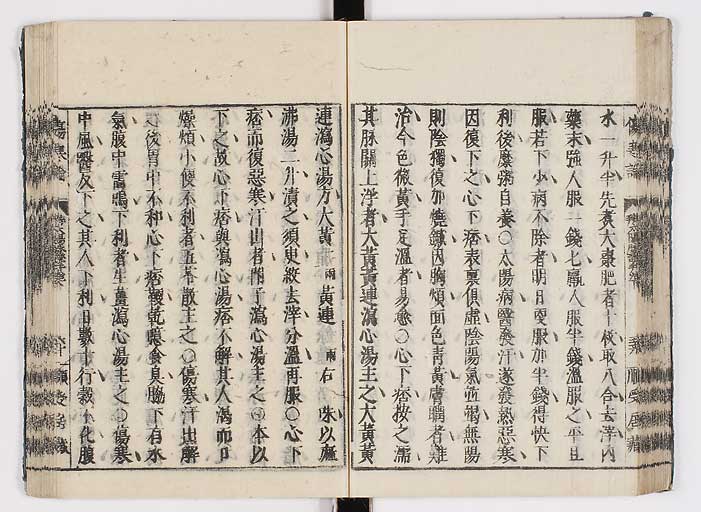 水一升半先煑大棗肥者十枚取八合去滓內
藥末強人服一錢七羸人服半錢溫服之平旦
服若下少病不除者明日更服加半錢得快下
利後糜粥自養○太陽病醫發汗遂發熱惡寒
因復下之心下痞表裏俱虛陰陽氣並竭無陽
則陰獨復加燒鍼因胸煩面色青黃膚瞤者難
治今色微黃手足溫者易愈○心下痞按之濡
其脉關上浮者大黃黃連瀉心湯主之大黃黃
連瀉心湯方大黃兩黃連兩右味以麻
沸湯二升漬之須臾絞去滓分溫再服○心下
痞而復惡寒汗出者附子瀉心湯主之○本以
下之故心下痞與瀉心湯痞不解其人渴而口
燥煩小便不利者五苓散主之○傷寒汗出解
之後胃中不和心下痞鞕乾噫食臭脇下有水
氣腹中雷鳴下利者生薑瀉心湯主之○傷寒
中風醫反下之其人下利日數十行穀不化腹